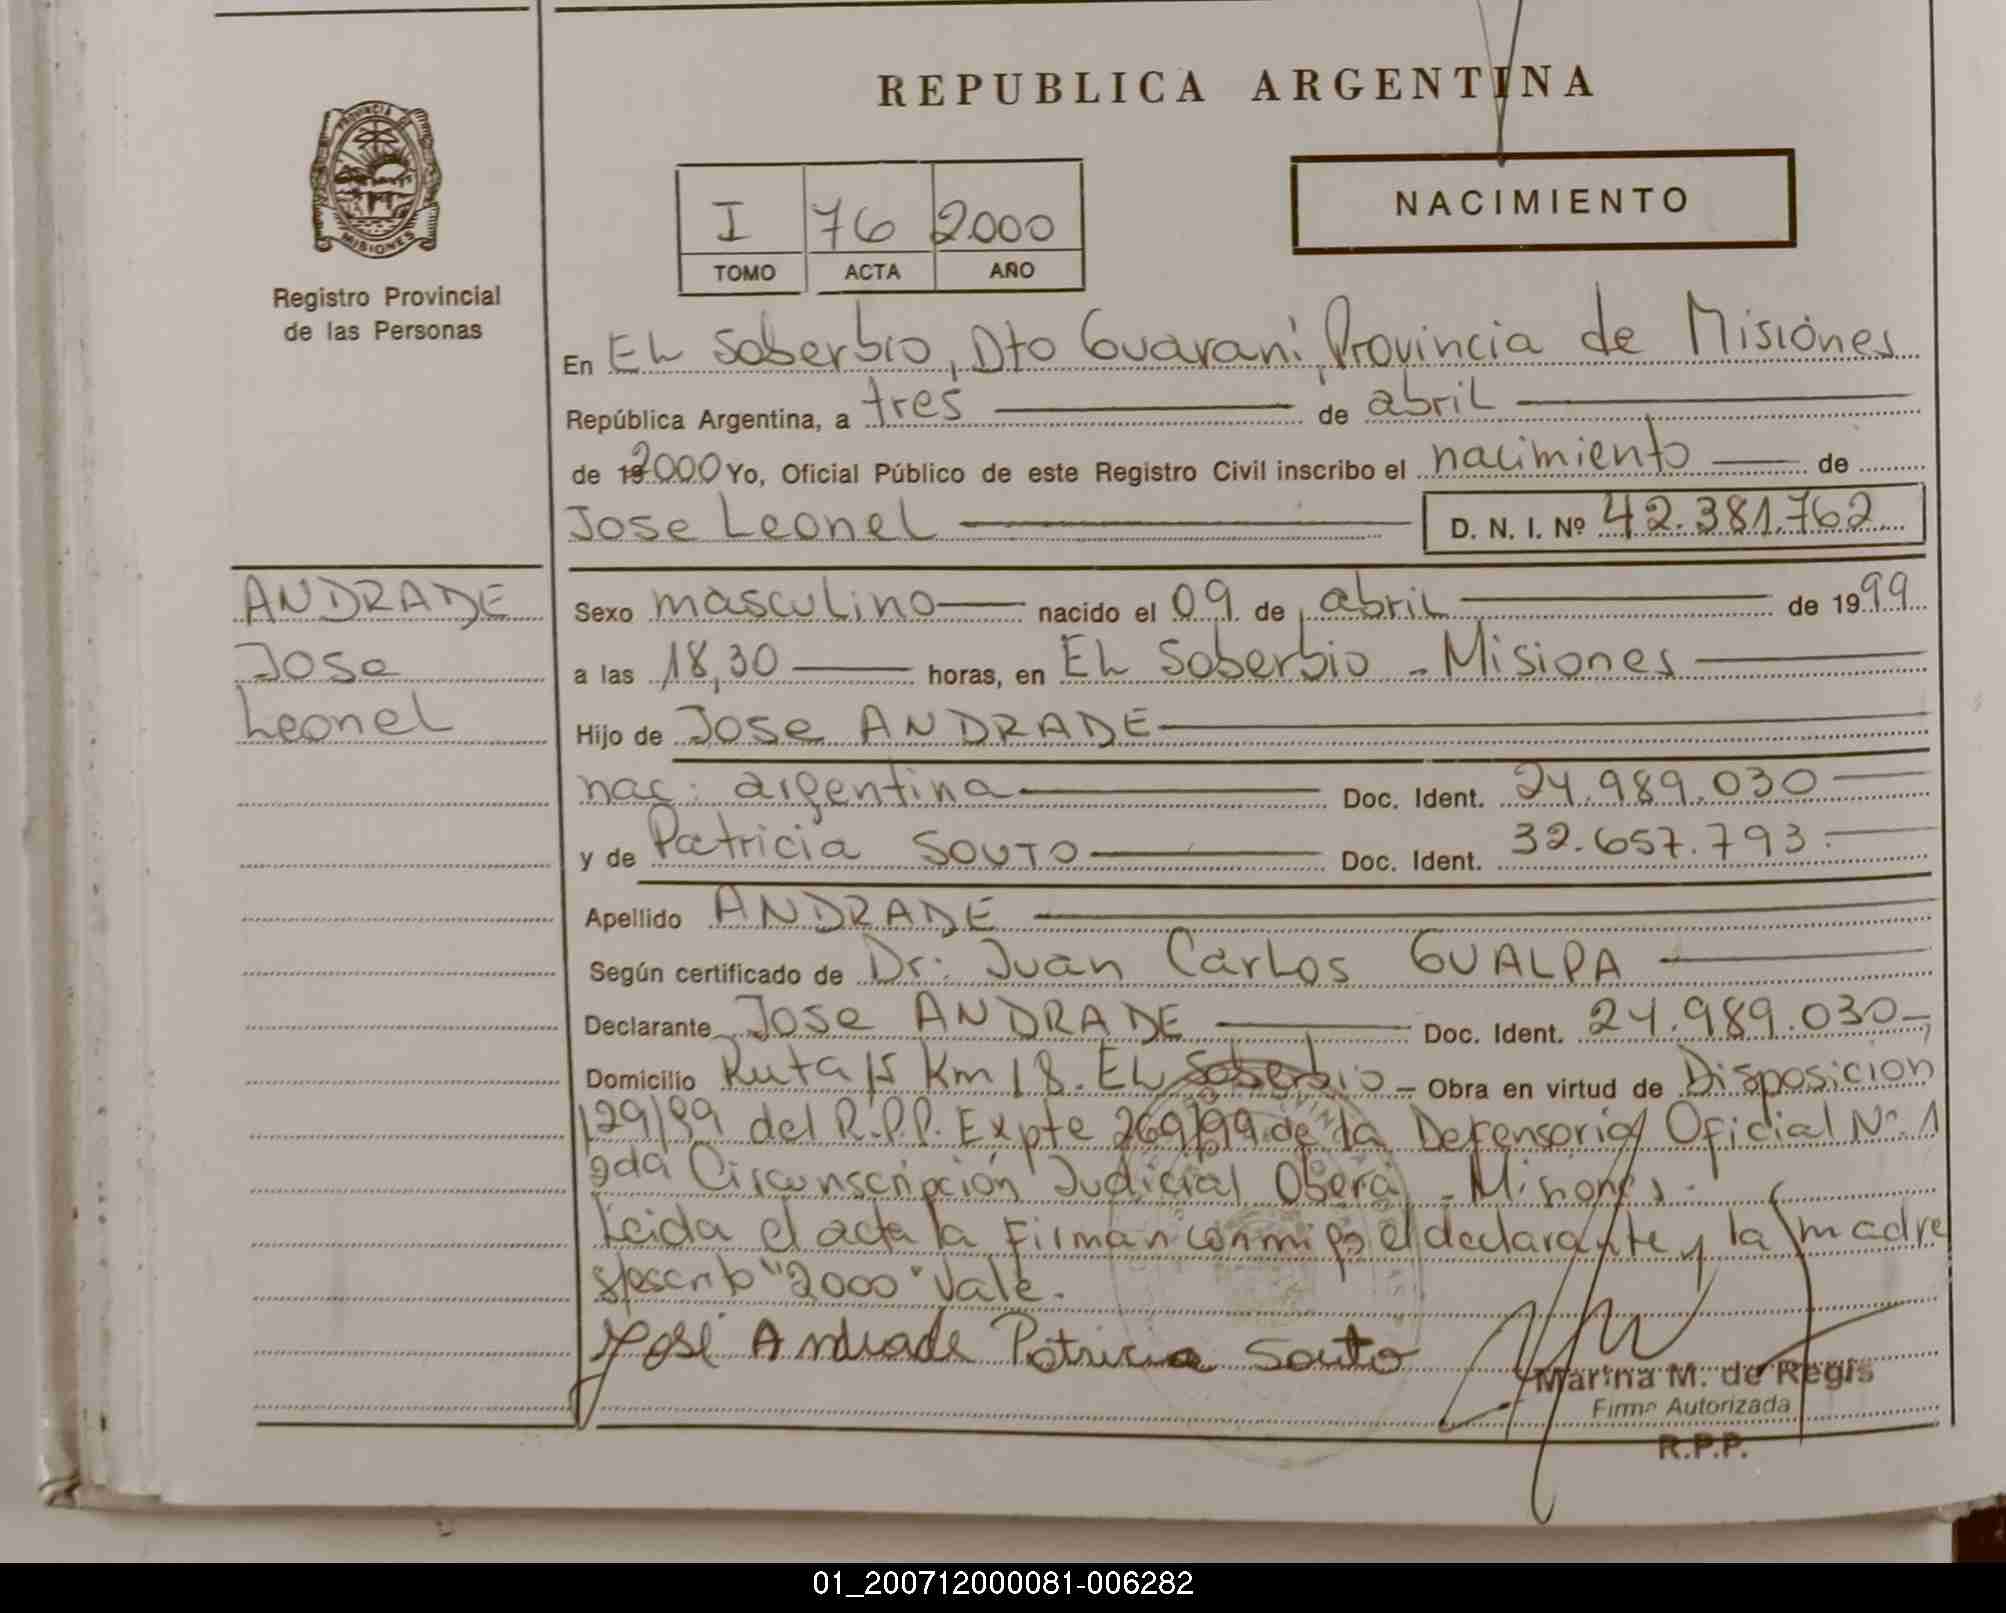 REPUBLICA ARGENTINA
PROVINCIA DE
MISIONES
Registro Provincial
de las Personas
I 76 2000
TOMO ACTA AÑO
NACIMIENTO
En EL Soberbio, Dto Guaraní, Provincia de Misiones
República Argentina, a tres de abril
de 2000 Yo, Oficial Público de este Registro Civil inscribo el nacimiento de
Jose Leonel D. N. I. Nº 42.381.762
ANDRADE
Jose
Leonel
Sexo masculino nacido el 09 de abril de 1999
a las 18,30 horas, en EL Soberbio - Misiones
Hijo de Jose ANDRADE
nac. argentina Doc. Ident. 24.989.030
y de Patricia SOUTO Doc. Ident. 32.657.793
Apellido ANDRADE
Según certificado de Dr. Juan Carlos GUALPA
Declarante Jose ANDRADE Doc. Ident. 24.989.030
Domicilio Ruta 15 Km 18. EL Soberbio - Obra en virtud de Disposicion
129/99 del R.P.P. Expte 269/99 de la Defensoria Oficial Nº 1
2da Circunscripción Judicial Oberá - Misiones.
Leida el acta la Firman conmigo el declarante y la madre
s/escrib "2000" Vale.
José Andrade Patricia Souto
Marina M. de Regis
Firma Autorizada
R.P.P.
01_200712000081-006282